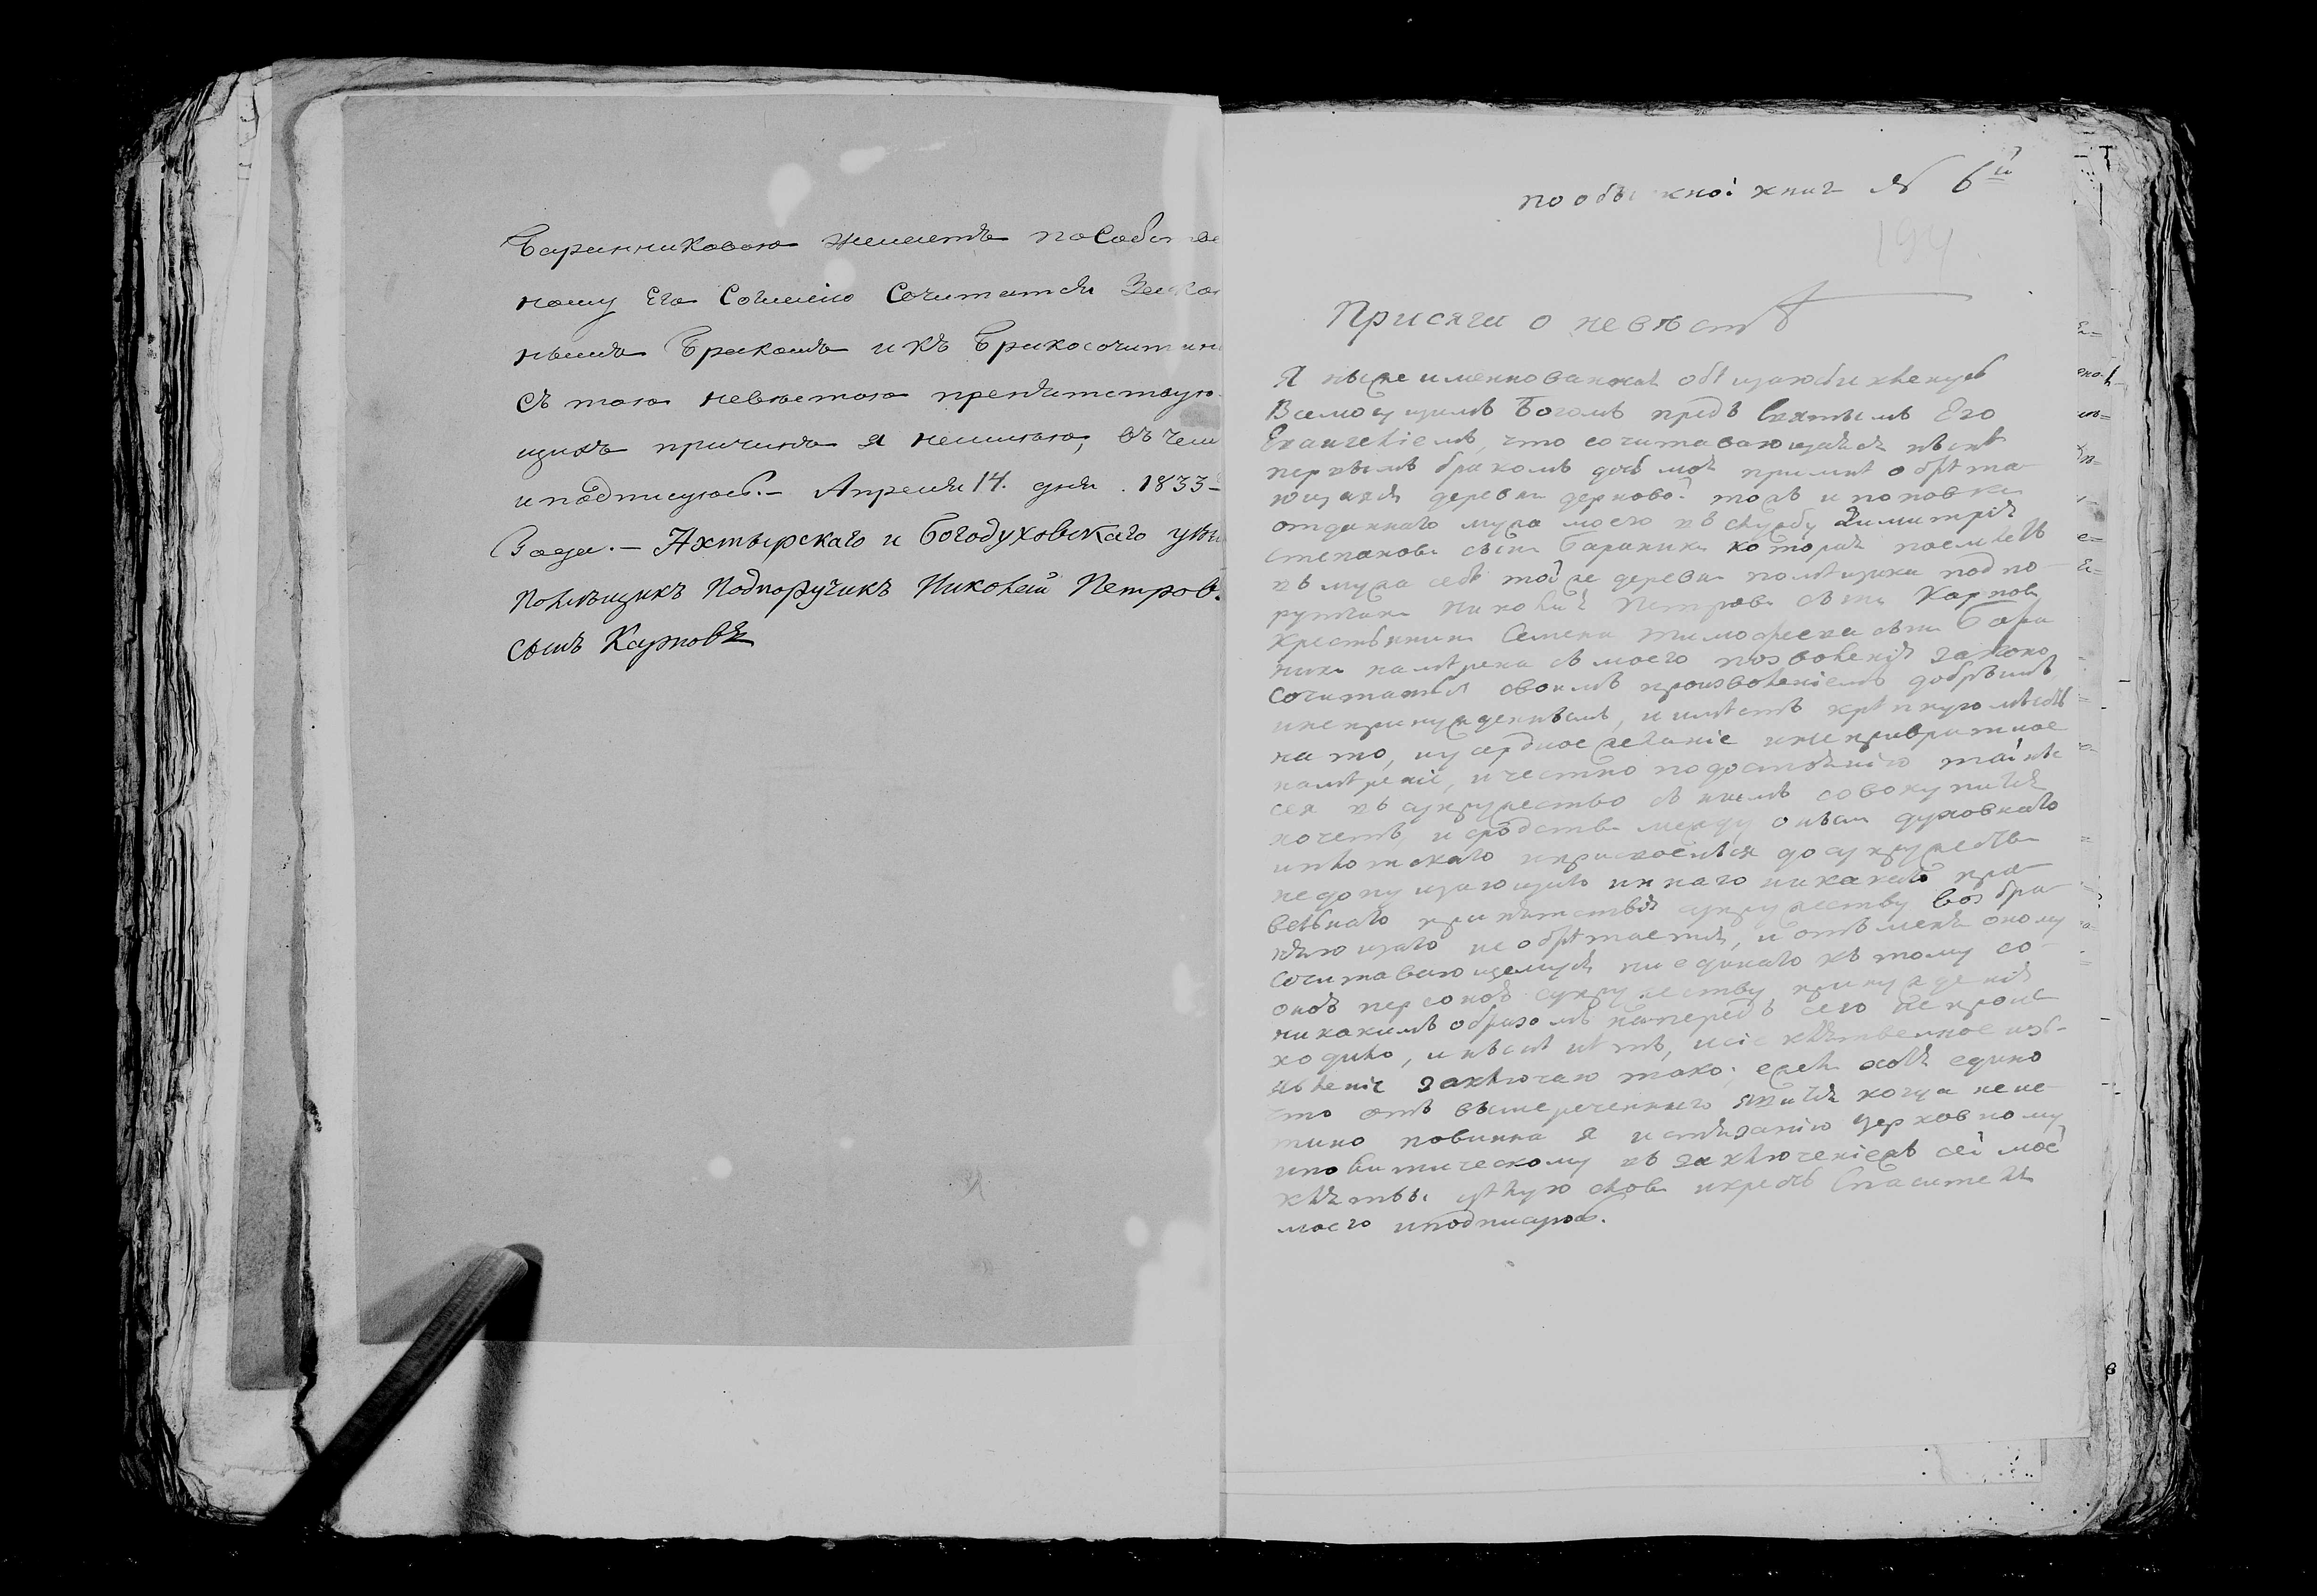 Баранниковою желаетъ по Собстве
ному Его Согласію Сочитатся Закон
нымъ Бракомъ и къ Бракосочитан
съ тою невестою препятствую
щихъ причинъ я неимею, въ чем
и подписуюсь.- Апреля 14. дня. 1833-
Года.- Ахтырскаго и Богодуховскаго уѣз
Помѣщикъ Подпоручикъ Николай Петров.
сынъ Карповъ
по обы кной книг № 6й
194.
Присяги о невѣстѣ
Я ниже именнованная обѣщаюсь и кленусь
Всемогущимъ Богомъ предъ Святымъ Его
Евангеліемъ, что сочитавающаяся нынѣ
первымъ бракомъ дочь моя обрѣта
ющаяся деревни и поповки
отданнаго мужа моего въ службу Димитрія
степанова сына Бараника которая поемлетъ
въ мужа себѣ той же деревни помѣщика подпо
рутчика Николая Петрова сына Карпова
крестьянина Семена тимофеева сына Бара
ника намѣрена съ моего позволенія законо
сочитатся своимъ произволеніемъ добрымъ
инепринужденнымъ, и имѣетъ крѣпкую мысль
на то, иусердное желаніе инепривратное
намѣреніе, и честно подостоянію тайны
сея въ супружество съ нимъ совокупится
хочетъ, и сродства между оными духовнаго
иплотскаго иприсвоенія до супружества
недопущающаго иннаго никакого пра
вельнаго припятствія супружеству возбра
няющаго не обрѣтается, и отъ меня оному
сочитавающемуся ни единаго къ тому со
онѣхъ персонъ супружеству принужденія
никакимъ образомъ напередъ сего не проис
ходило, и нынѣ нѣтъ, и сіе клятвенное изъ-
явленіе заключаю тако: ежели хотя едино
что отъ вышереченнаго явится когда неис
тинно повинна я истязанію церковному
иполитическому въ заключеніежъ сей моей
клятвы цѣлую слова икрестъ Спасителя
моего иподписуюсь.